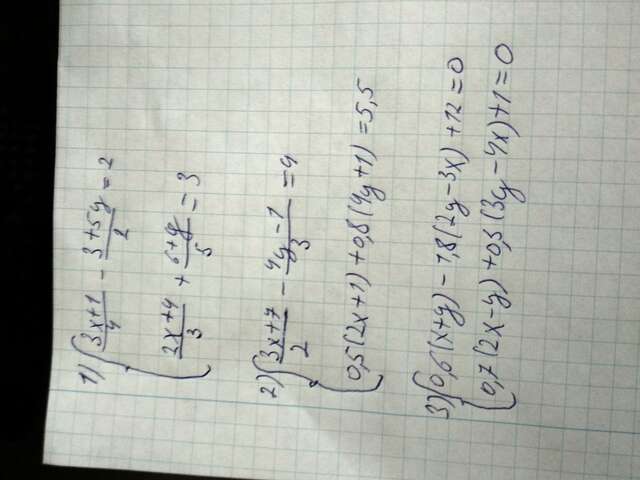 1) { (3x+1)/4 - (3+5y)/2 = 2
(2x+4)/3 + (6+y)/5 = 3
2) { (3x+7)/2 - (4y-1)/3 = 4
0,5(2x+1) + 0,8(4y+1) = 5,5
3) { 0,6(x+y) - 1,8(2y-3x) + 12 = 0
0,7(2x-y) + 0,3(3y-4x) + 1 = 0